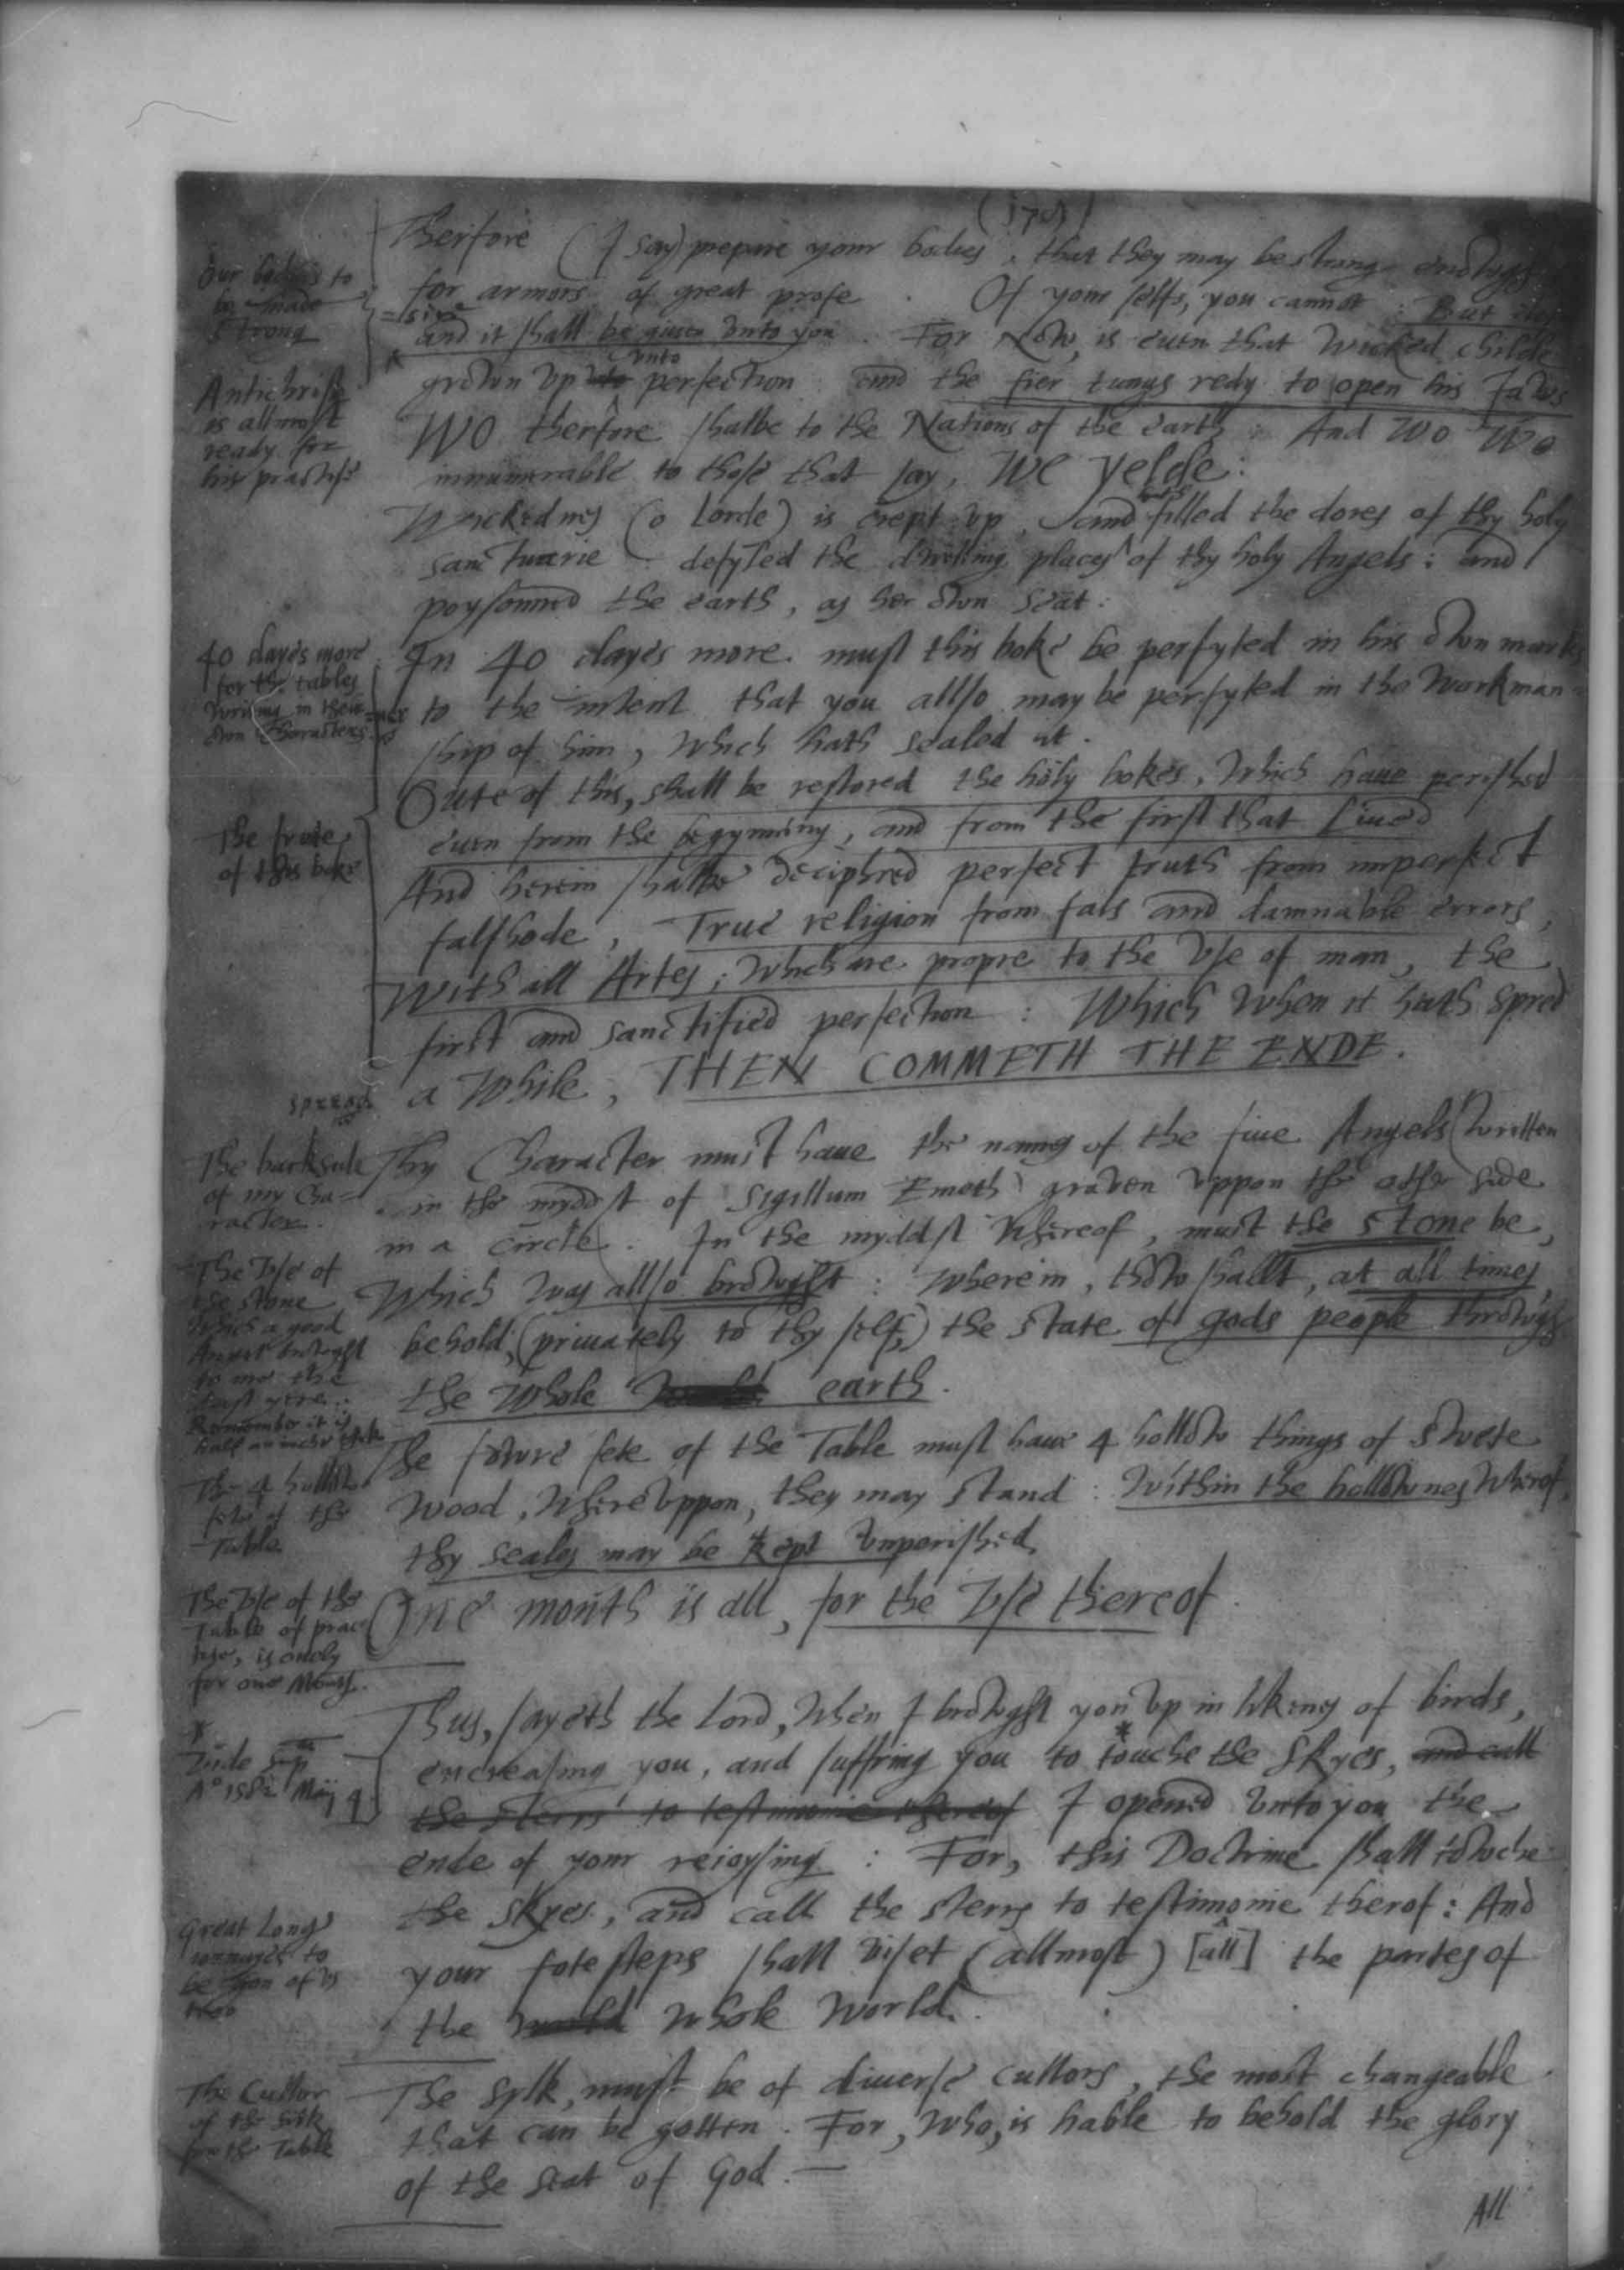 Therfore (I say) prepare your bodies, that they may be strong enowgh
for armors of great profe. Of your selfs, you cannot: But
and it shall be giuen vnto you. For Now, is euen that wicked childe
grown vp vnto perfection: and the fier tungs redy to open his Jaws
WO therfore shalbe to the Nations of the earth: And WO WO
innumerable to those that say, We yelde:
Wickednes (o Lorde) is crept vp, and filled the dores of thy holy
sanctuarie: defyled the dwelling places of thy holy Angels: and
poysonned the earth, as her own seat:
In 40 dayes more must this boke be perfyted in his own
to the intent that you allso may be perfyted in the workman=
ship of him, which hath sealed it.
Oute of this, shall be restored the holy bokes, which haue perished
euen from the begynning, and from the first that liued
And herein shalbe deciphred perfect truth from imperfect
falshode, True religion from fals and damnable errors,
With all Artes; which are propre to the vse of man, the
first and sanctified perfection: Which when it hath spred
a while, THEN COMMETH THE ENDE.
Thy Character must haue the names of the fiue Angels (written
in the myddst of Sigillum Emeth) grauen vppon the other side
in a circle. In the myddst whereof, must the stone be,
Which was allso browght: wherein, thow shallt, at all times
behold, (priuately to thy self,) the state of gods people throwgh
the whole earth.
The fowre fete of the Table must haue 4 hollow things of swete
wood, wherevppon, they may stand: within the hollownes wherof,
thy seales may be kept vnperished.
One month is all, for the vse thereof.
Thus, sayeth the Lord, when I browght you vp in likenes of birds,
encreasing you, and suffring you to *touche the skyes, and call
the sterrs to testimonie thereof I opened vnto you the
ende of your reioysing: For, this Doctrine shall towche
the skyes, and call the sterrs to testimonie therof: And
your fotesteps shall viset (allmost) [all] the partes of
the world whole world.
The sylk, must be of diuerse cullors, the most changeable
that can be gotten. For, who, is hable to behold the glory
of the seat of God.
All
our bodies to
be made
strong
Antichrist
is allmost
ready for
his practise
40 dayes more
for the tables
writing in their
own Characters
The frute
of this boke
spread
The backside
of my Cha=
racter.
The vse of
the stone
which a good
Angel browght
to me the
last yere.
Remember it is
half an inche thik
The 4 hollow
fete of the
Table
The vse of the
Table of prac
tise, is onely
for one Month.
*
Vide sup
A° 1582 Maij 4
Great Long
to
be gon of vs
two
The Cullor
of the silk
for the Table